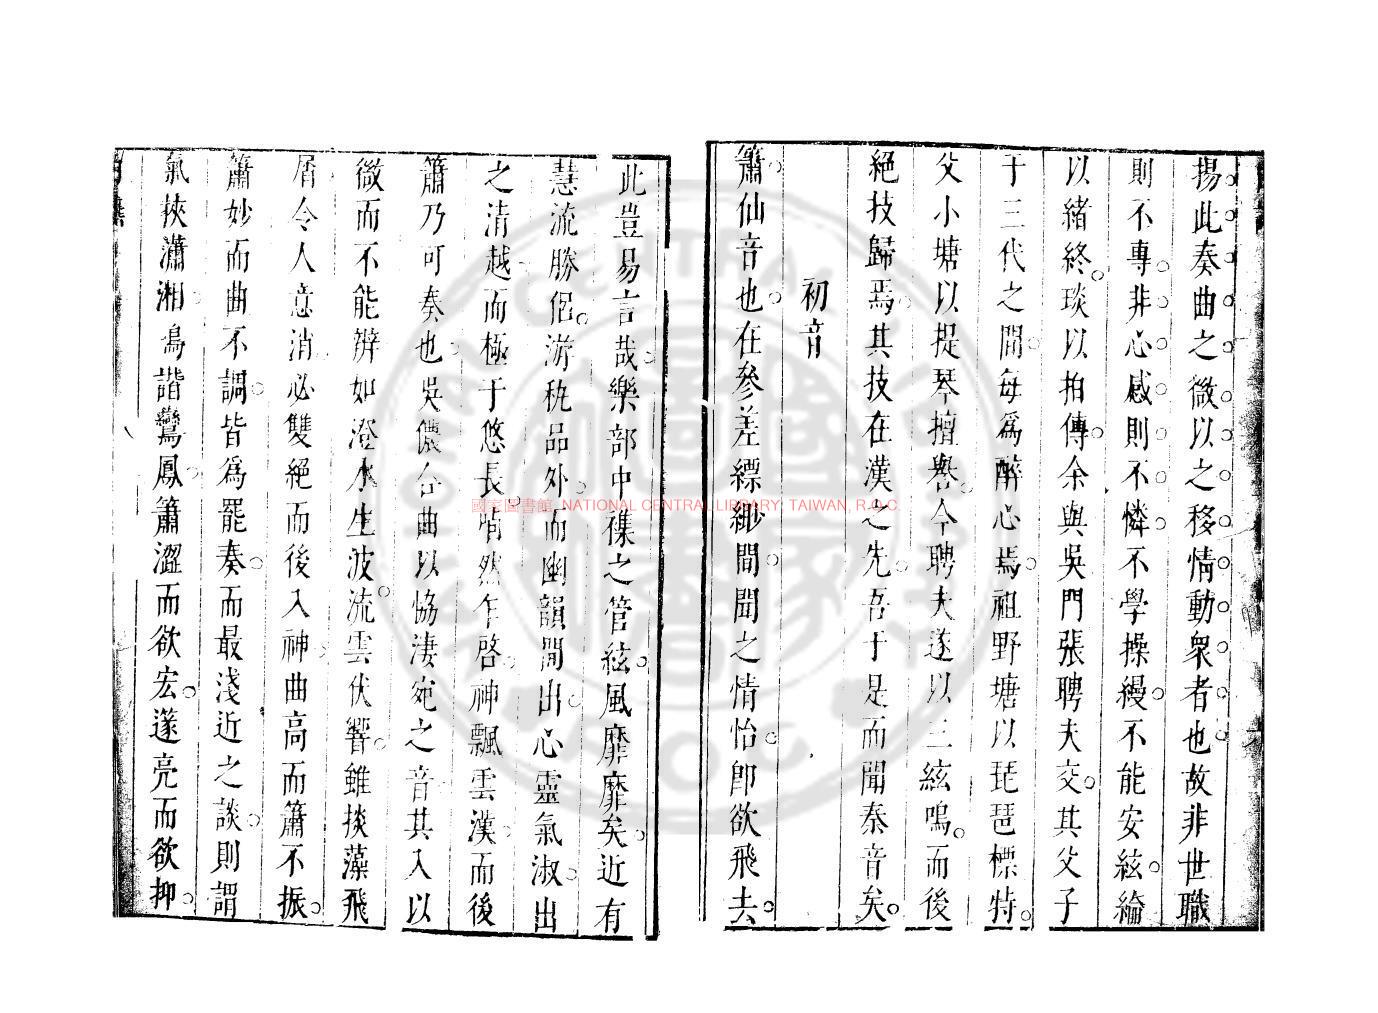 揚此奏曲之微以之移情動衆者也故非世職
則不專非心感則不憐不學操縵不能安絃綸
以緒終琰以拍傳余與吳門張聘夫交其父子
于三代之間每爲醉心焉祖野塘以琵琶標特
父小塘以提琴擅譽今聘夫遂以三絃鳴而後
絕技歸焉其技在漢之先吾于是而聞秦音矣
初音
簫仙音也在參差縹緲間聞之情怡卽欲飛去
此豈易言哉樂部中襍之管絃風靡靡矣近有
慧流勝侶游秇品外而幽韻閒出心靈氣淑出
之清越而極于悠長悄然乍啓神飄雲漢而後
簫乃可奏也吳儂合曲以恊淒宛之音其入以
微而不能辨如澄水生波流雲伏響雖掞藻飛
屑令人意消必雙絕而後入神曲高而簫不振
簫妙而曲不調皆爲罷奏而最淺近之談則謂
氣挾瀟湘鳥諧鸞鳳簫澀而欲宏邃亮而欲抑
國家圖書館 NATIONAL CENTRAL LIBRARY, TAIWAN, R.O.C.